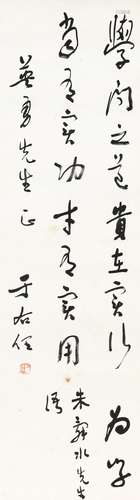 學問之道貴在實行為學
當有實功才有實用
朱舜水先生
語
英勇先生正
于右任